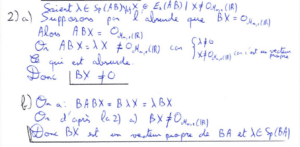 Soient λ ∈ Sp(AB)\{0}, X ∈ E_λ(AB) / X ≠ 0_{M_{n,1}(ℝ)}
2) a) Supposons par l'absurde que BX = 0_{M_{n,1}(ℝ)}
Alors ABX = 0_{M_{n,1}(ℝ)}
Or ABX = λX ≠ 0_{M_{n,1}(ℝ)} car { λ ≠ 0
X ≠ 0_{M_{n,1}(ℝ)} car c'est un vecteur propre
Ce qui est absurde.
Donc BX ≠ 0
b) On a : BABX = BλX = λBX
Or d'après la 2) a) BX ≠ 0_{M_{n,1}(ℝ)}
Donc BX est un vecteur propre de BA et λ ∈ Sp(BA)